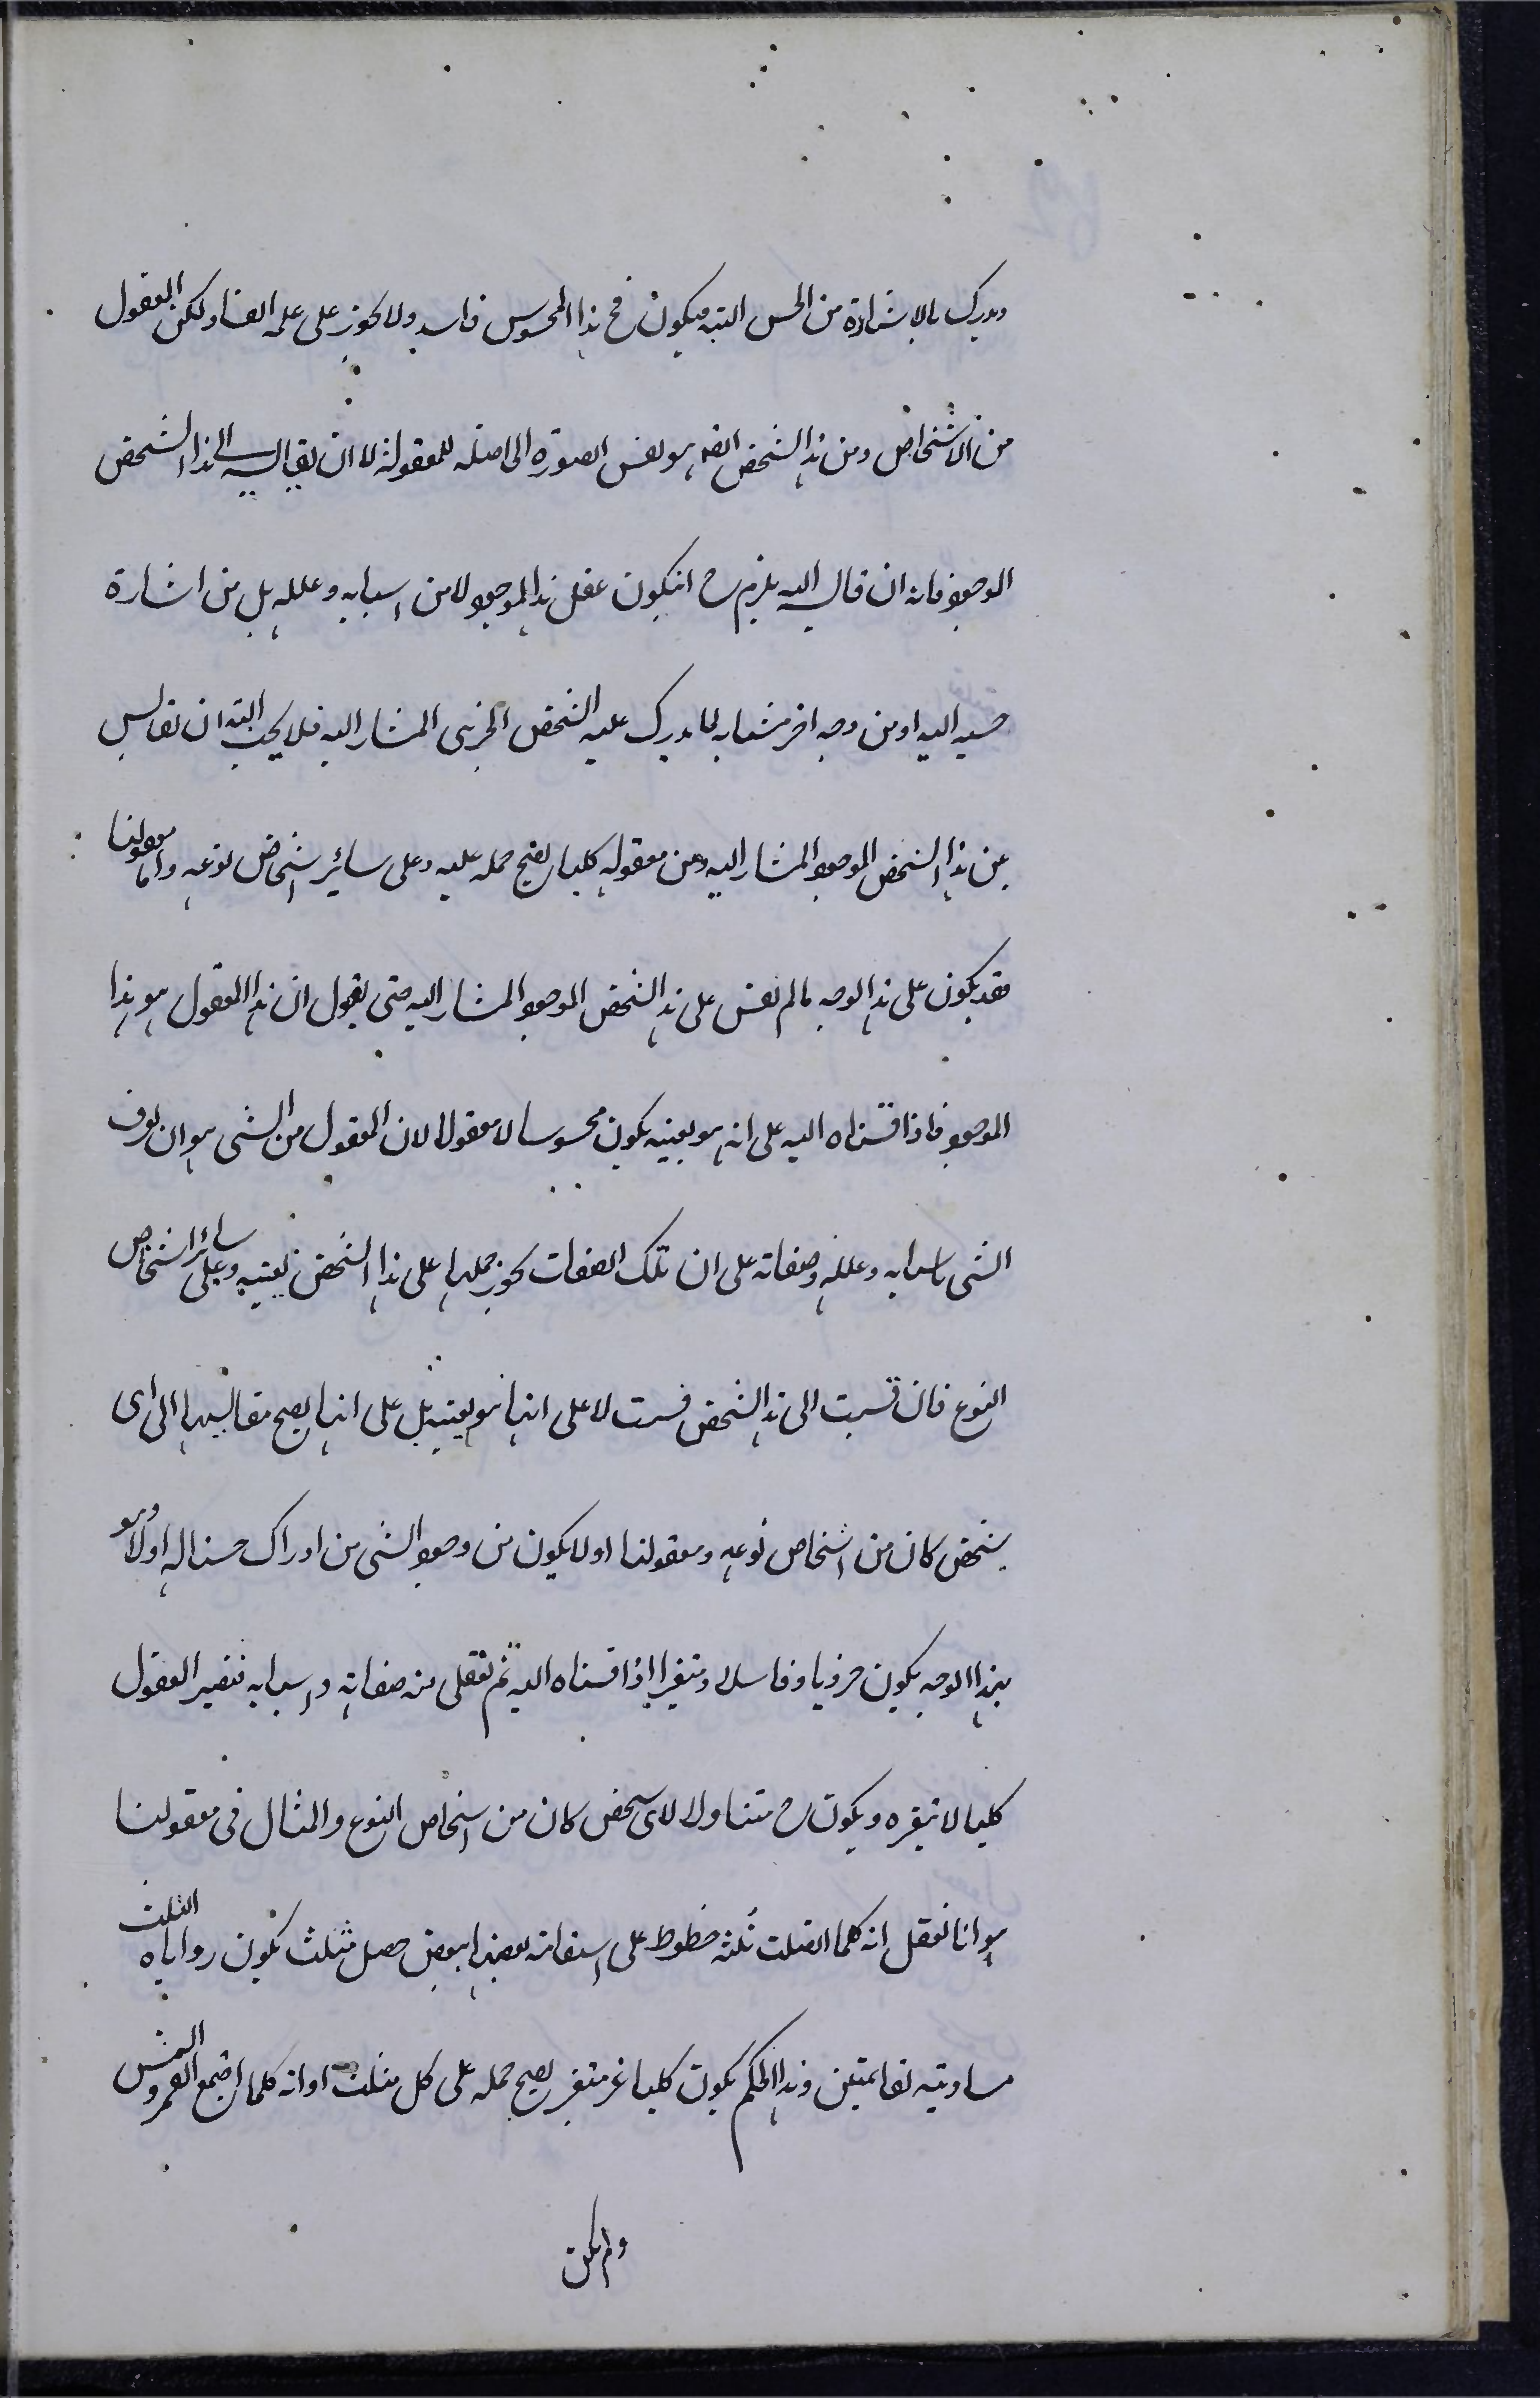 ويدرك بالاشارة من الحس البتة فيكون ح هذا المحسوس فاسد ولا يجوز على علمه الفساد ولكن المعقول
من الاشخاص ومن هذا الشخص ايضا هو نفس الصورة الحاصلة المعقولة لا ان يقاليسه الى هذا الشخص
الموجود فانه ان قاليسه اليه يلزم ح انيكون عقل هذا الموجود لا من اسبابه وعلله بل من اشارة
حسيه اليه او من وجه اخر مشابه لما يدرك عليه الشخص الجزيى المشار اليه فلا يجب البتة ان يقاليس
بين هذا الشخص الموجود المشار اليه وبين معقوله كليا يصح حمله عليه وعلى سائر اشخاص نوعه واما معقولنا
فقد يكون على هذا الوجه ما لم نقس على هذا الشخص الموجود المشار اليه حتى يقول ان هذا المعقول هو هذا
الموجود فاذا قسناه اليه على انه هو بعينه يكون محسوسا لا معقولا لان المعقول من الشى هو ان يعرف
الشى باسبابه وعلله وصفاته على ان تلك الصفات يجوز حملها على هذا الشخص بعينه وعلى سائر اشخاص
النوع فان قسبت الى هذا الشخص قست لا على انها هو بعينه بل على انها يصح مقاليسها الى اى
شخص كان من اشخاص نوعه ومعقولنا اولا يكون من وجود الشى من ادراك حسنا له اولا وهو
بهذا الوجه يكون جزويا وفاسدا ومتغيرا اذا قسناه اليه ثم نعقل من صفاته واسبابه فيصير المعقول
كليا لا يتغيره ويكون ح متناولا لاى شخص كان من اشخاص النوع والمثال فى معقولنا
هو انا نعقل انه كلما اتصلت ثلثه خطوط على استقامه بعضها ببعض حصل مثلث يكون زواياه الثلث
مساويته لقائمتين وهذا الحكم يكون كليا غير متغير يصح حمله على كل مثلث او انه كلما اجتمع القمر والشمس
ولم يكن